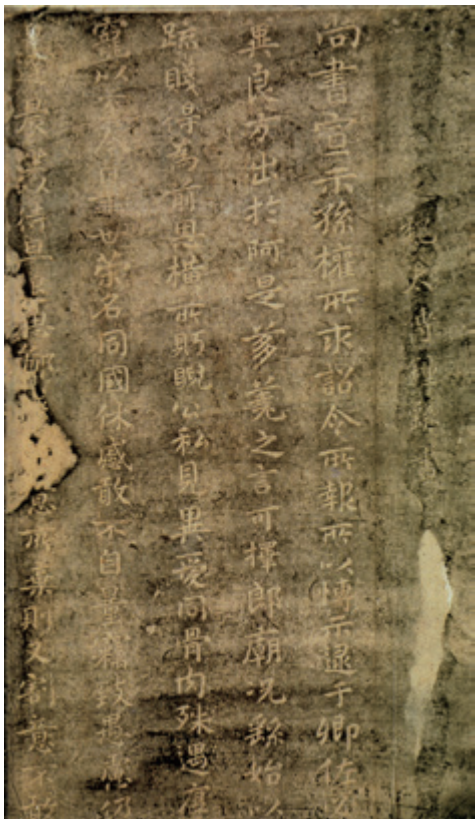 尚書宣示孫權所求詔令所報所以博示逮于卿佐必
冀良方出於阿是芻蕘之言可擇郎廟況繇始以
疏賤得為前恩橫所盱睨公私見異愛同骨肉殊遇厚
寵以至今日再世榮名同國休慼敢不自量竊致愚慮仍
晨坐以待旦思鄙意所棄則又割意不敢